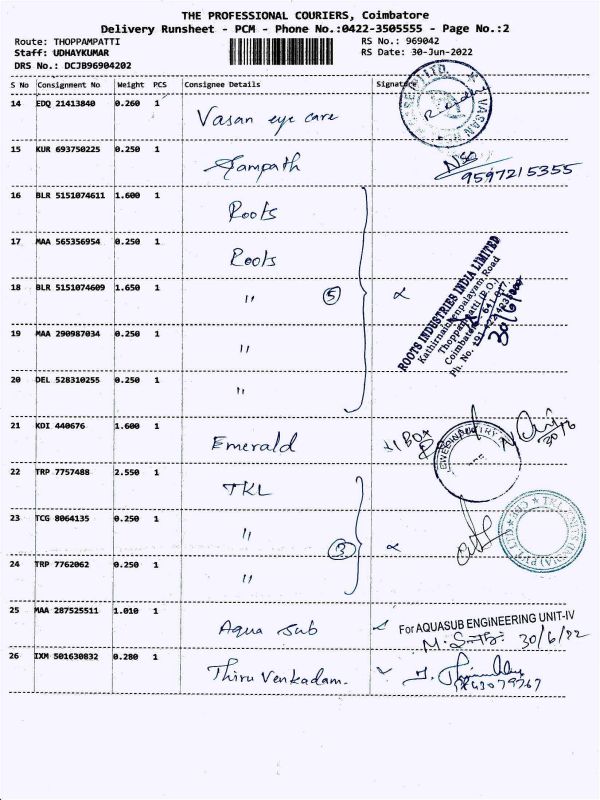 THE PROFESSIONAL COURIERS, Coimbatore
Delivery Runsheet - PCM - Phone No.:0422-3505555 - Page No.:2
Route: THOPPAMPATTI RS No.: 969042
Staff: UDHAYKUMAR RS Date: 30-Jun-2022
DRS No.: DCJB96904202
S No Consignment No Weight PCS Consignee Details Signat
14 EDQ 21413840 0.260 1 Vasan eye care
15 KUR 693750225 0.250 1 Sampath
9597215355
16 BLR 5151074611 1.600 1 Roots
17 MAA 565356954 0.250 1 Roots
18 BLR 5151074609 1.650 1 " 5
ROOTS INDUSTRIES INDIA LIMITED
Thoppampatti (P.O.)
30/6/
19 MAA 290987034 0.250 1 "
20 DEL 528310255 0.250 1 "
21 KDI 440676 1.600 1 Emerald
30/6
22 TRP 7757488 2.550 1 TKL
23 TCG 8064135 0.250 1 " 3
24 TRP 7762062 0.250 1 "
25 MAA 287525511 1.010 1 Aqua sub For AQUASUB ENGINEERING UNIT-IV
30/6/22
26 IXM 501630832 0.280 1 Thiru Venkadam.